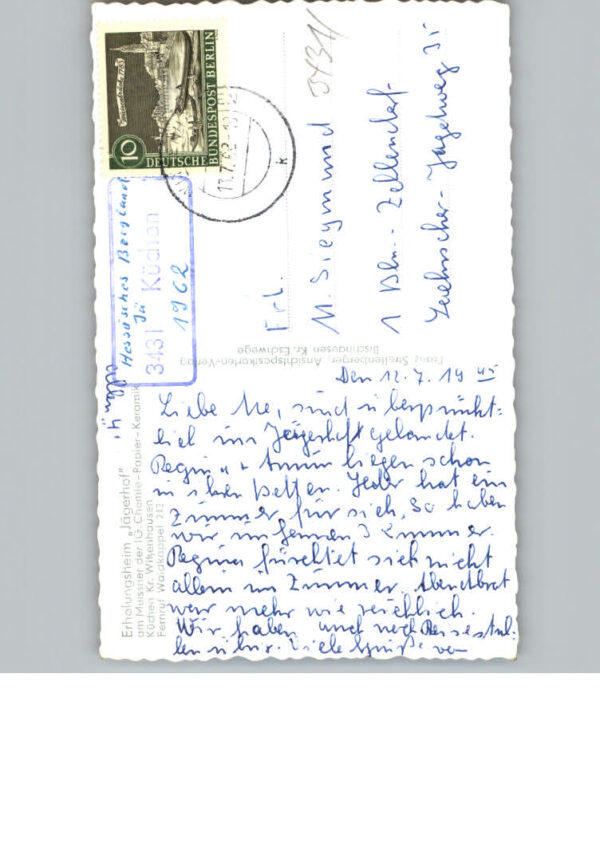 DEUTSCHE BUNDESPOST BERLIN
10
Hessisches Bergland
3431 Küchen
1962
3431/
Frl.
M. Siegmund
1 Bln.- Zehlendorf
35
Franz Streitenberger, Ansichtspostkarten-Verlag
Bischhausen Kr. Eschwege
Erholungsheim „Jägerhof"
am Meissner der IG. Chemie-Papier-Keramik
Küchen Kr. Witzenhausen
Fernruf Waldkappel 282
Den 12.7. 19 45
Liebe Me, sind überpünkt-
lich im Jägerhof gelandet.
liegen schon
in ihren Betten. Jeder hat ein
Zimmer für sich, so haben
wir im ganzen 3 Zimmer.
Regina fürchtet sich nicht
allein im Zimmer. Abendbrot
war mehr wie reichlich.
Wir haben und noch
Viele Grüße von